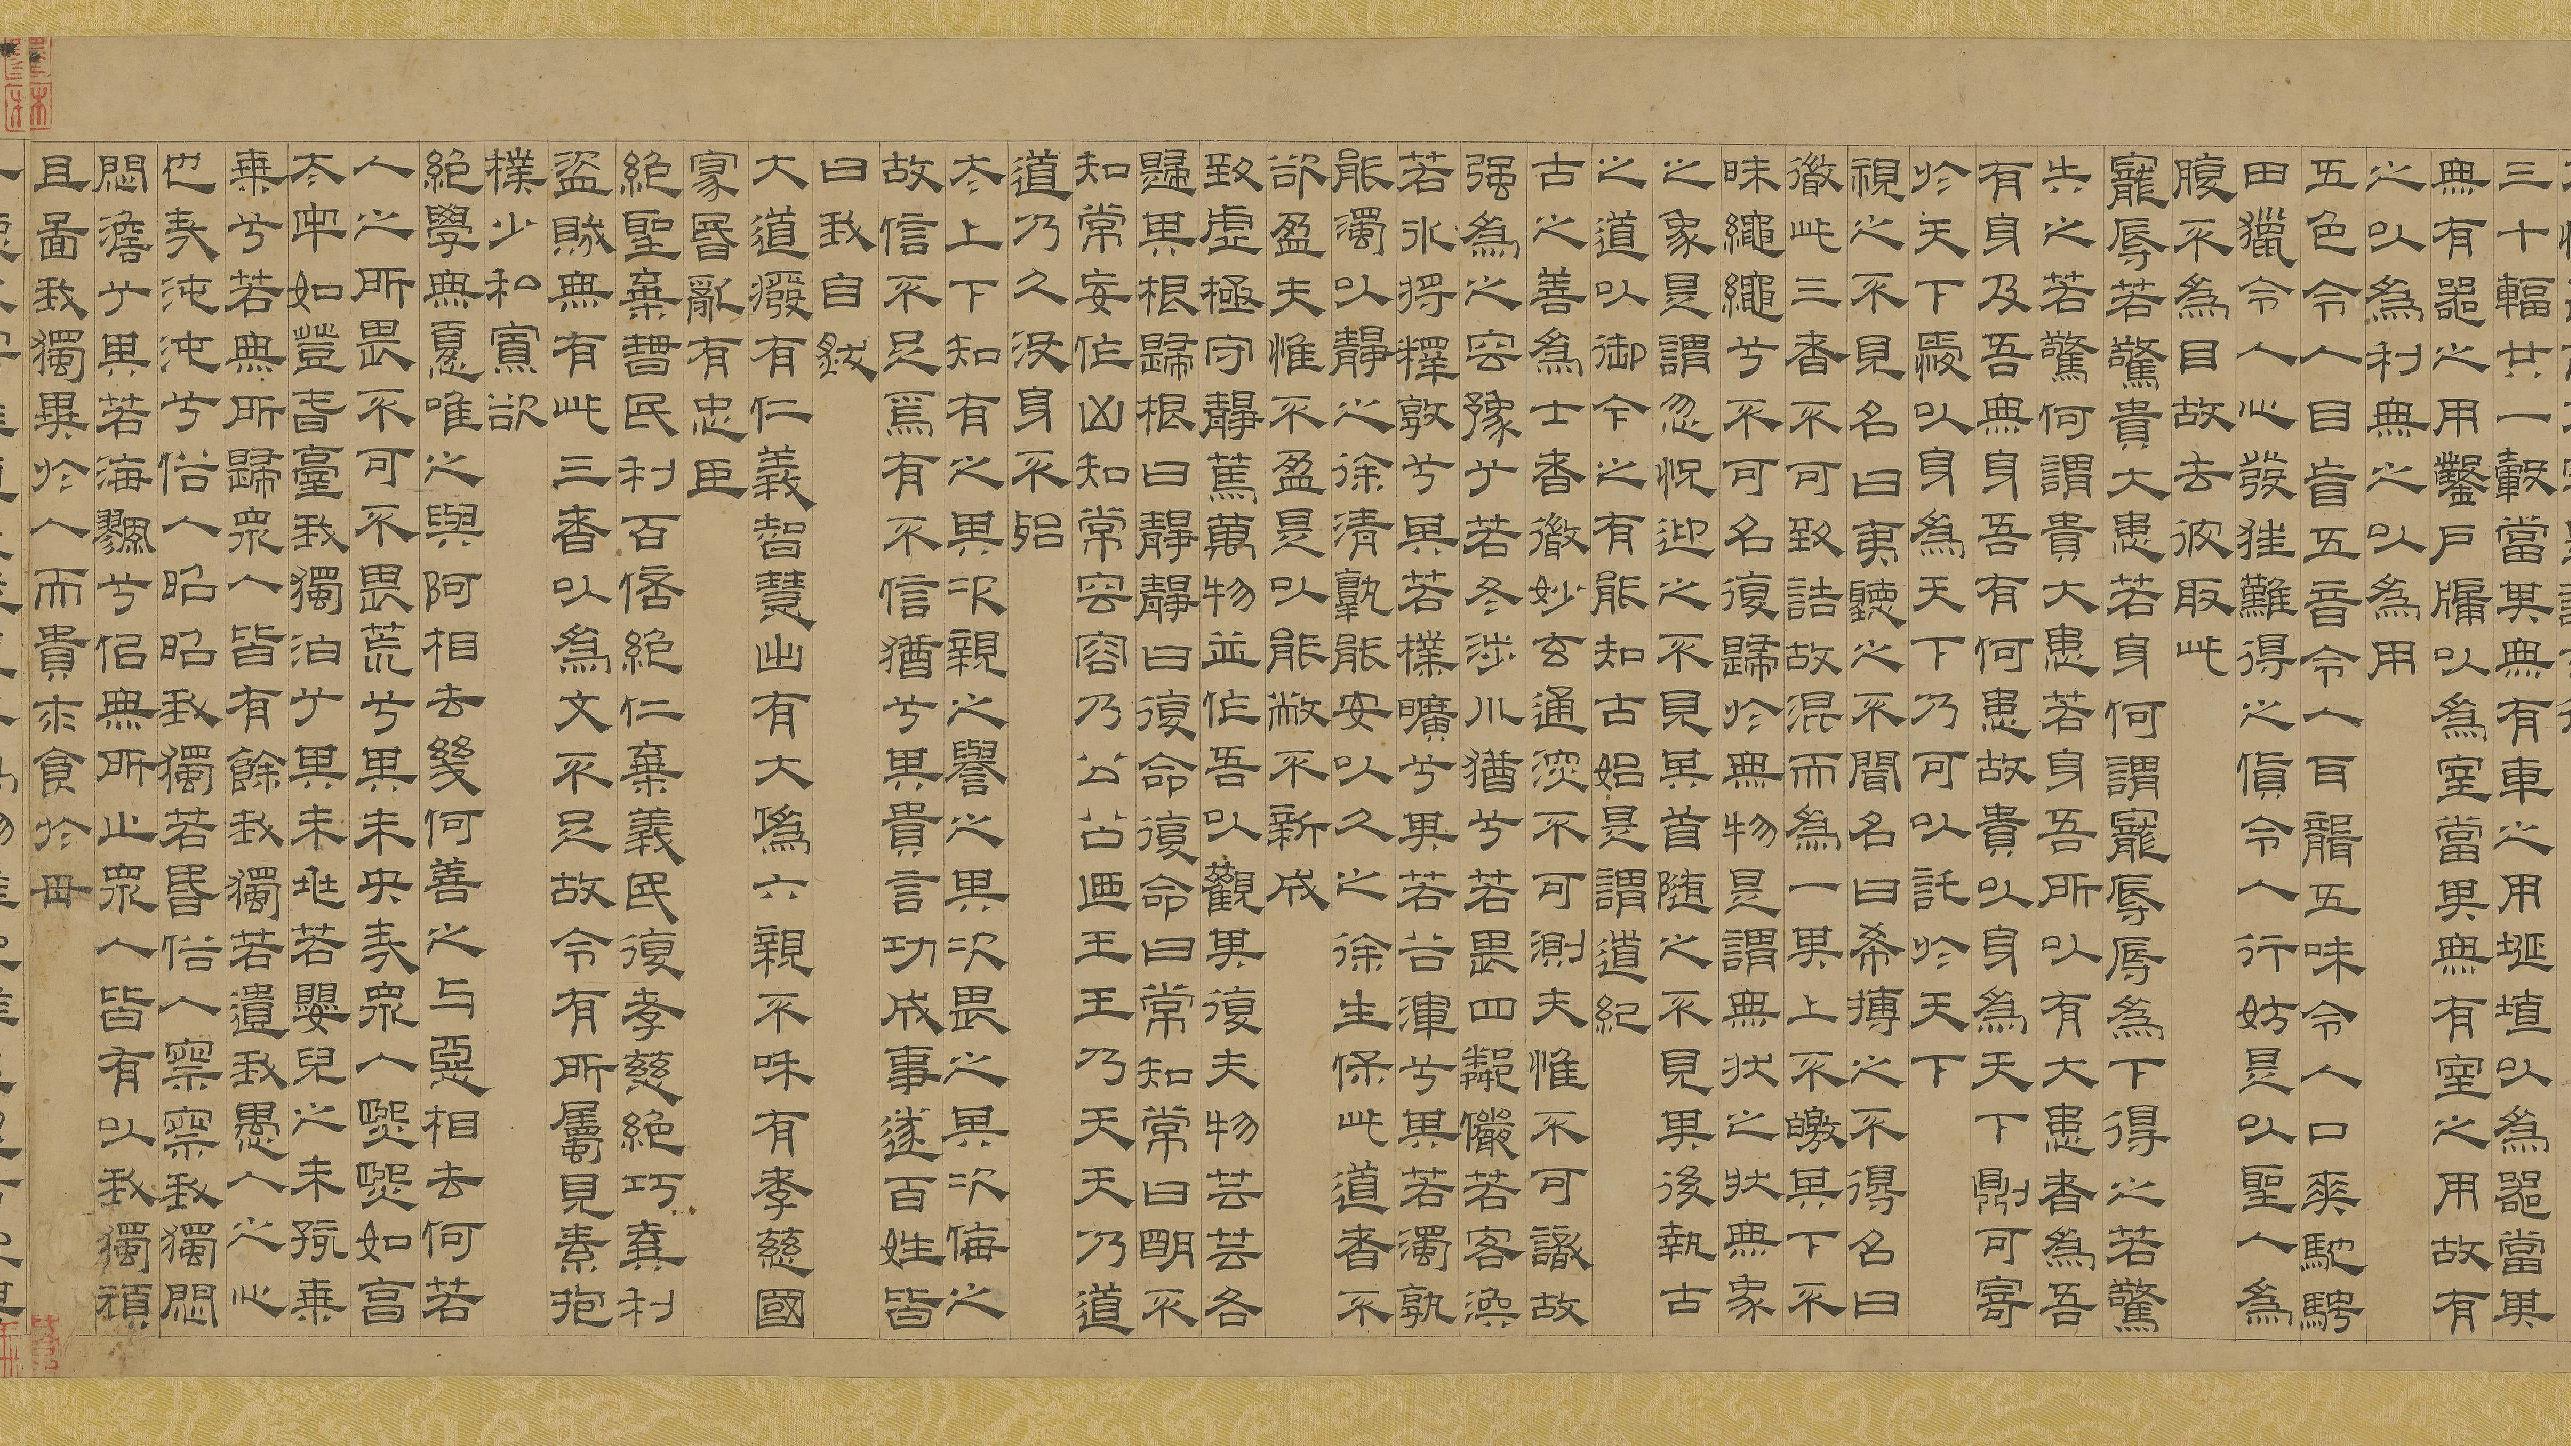 三十輻共一轂當其無有車之用埏埴以為器當其
無有器之用鑿戶牖以為室當其無有室之用故有
之以為利無之以為用
五色令人目盲五音令人耳聾五味令人口爽馳騁
田獵令人心發狂難得之貨令人行妨是以聖人為
腹不為目故去彼取此
寵辱若驚貴大患若身何謂寵辱辱為下得之若驚
失之若驚何謂貴大患若身吾所以有大患者為吾
有身及吾無身吾有何患故貴以身為天下則可寄
於天下愛以身為天下乃可以託於天下
視之不見名曰夷聽之不聞名曰希搏之不得名曰
微此三者不可致詰故混而為一其上不皦其下不
昧繩繩兮不可名復歸於無物是謂無狀之狀無象
之象是謂忽怳迎之不見其首随之不見其後執古
之道以御今之有能知古始是謂道紀
古之善為士者微妙玄通深不可測夫惟不可識故
强為之容豫兮若冬涉川猶兮若畏四鄰儼若客渙
若冰將釋敦兮其若樸曠兮其若谷渾兮其若濁孰
能濁以靜之徐清孰能安以久之徐生保此道者不
欲盈夫惟不盈是以能敝不新成
致虛極守靜篤萬物並作吾以觀其復夫物芸芸各
歸其根歸根曰靜靜曰復命復命曰常知常曰明不
知常妄作凶知常容容乃公公廼王王乃天天乃道
道乃久没身不殆
太上下知有之其次親之譽之其次畏之其次侮之
故信不足焉有不信猶兮其貴言功成事遂百姓皆
曰我自然
大道廢有仁義智慧出有大偽六親不和有孝慈國
家昏亂有忠臣
絕聖棄智民利百倍絕仁棄義民復孝慈絕巧棄利
盜賊無有此三者以為文不足故令有所屬見素抱
樸少私寡欲
絕學無憂唯之與阿相去幾何善之与惡相去何若
人之所畏不可不畏荒兮其未央哉眾人熙熙如享
太牢如登春臺我獨泊兮其未兆若嬰兒之未孩乘
乘兮若無所歸眾人皆有餘我獨若遺我愚人之心
也哉沌沌兮俗人昭昭我獨若昏俗人察察我獨悶
悶澹兮其若海飂兮似無所止眾人皆有以我獨頑
且鄙我獨異於人而貴求食於母